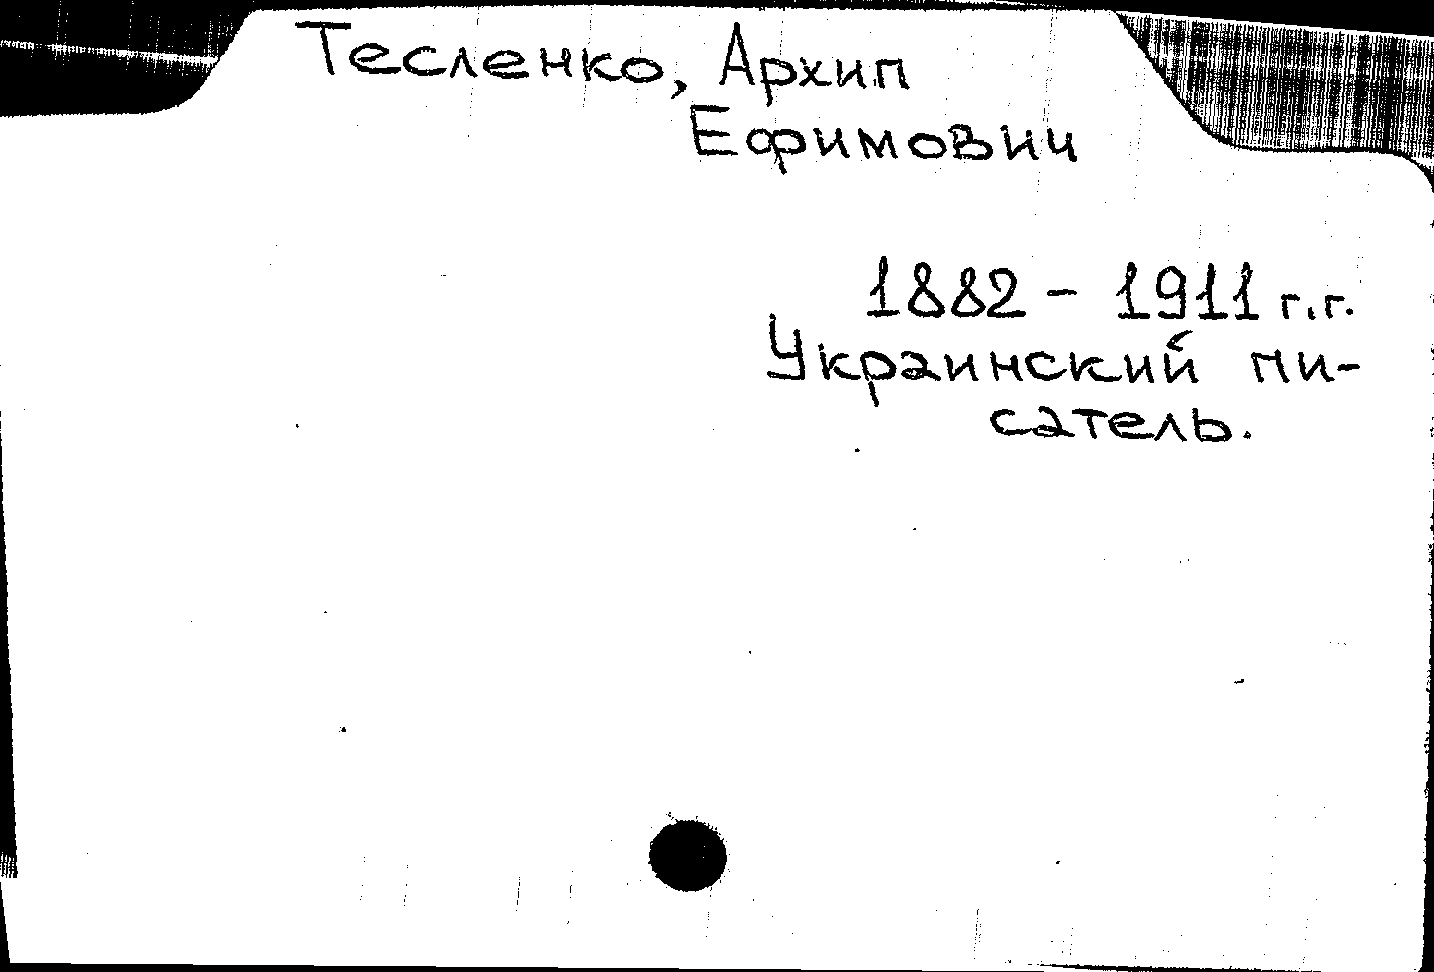 Тесленко, Архип
Ефимович
1882 - 1911 г.г.
Украинский пи-
сатель.